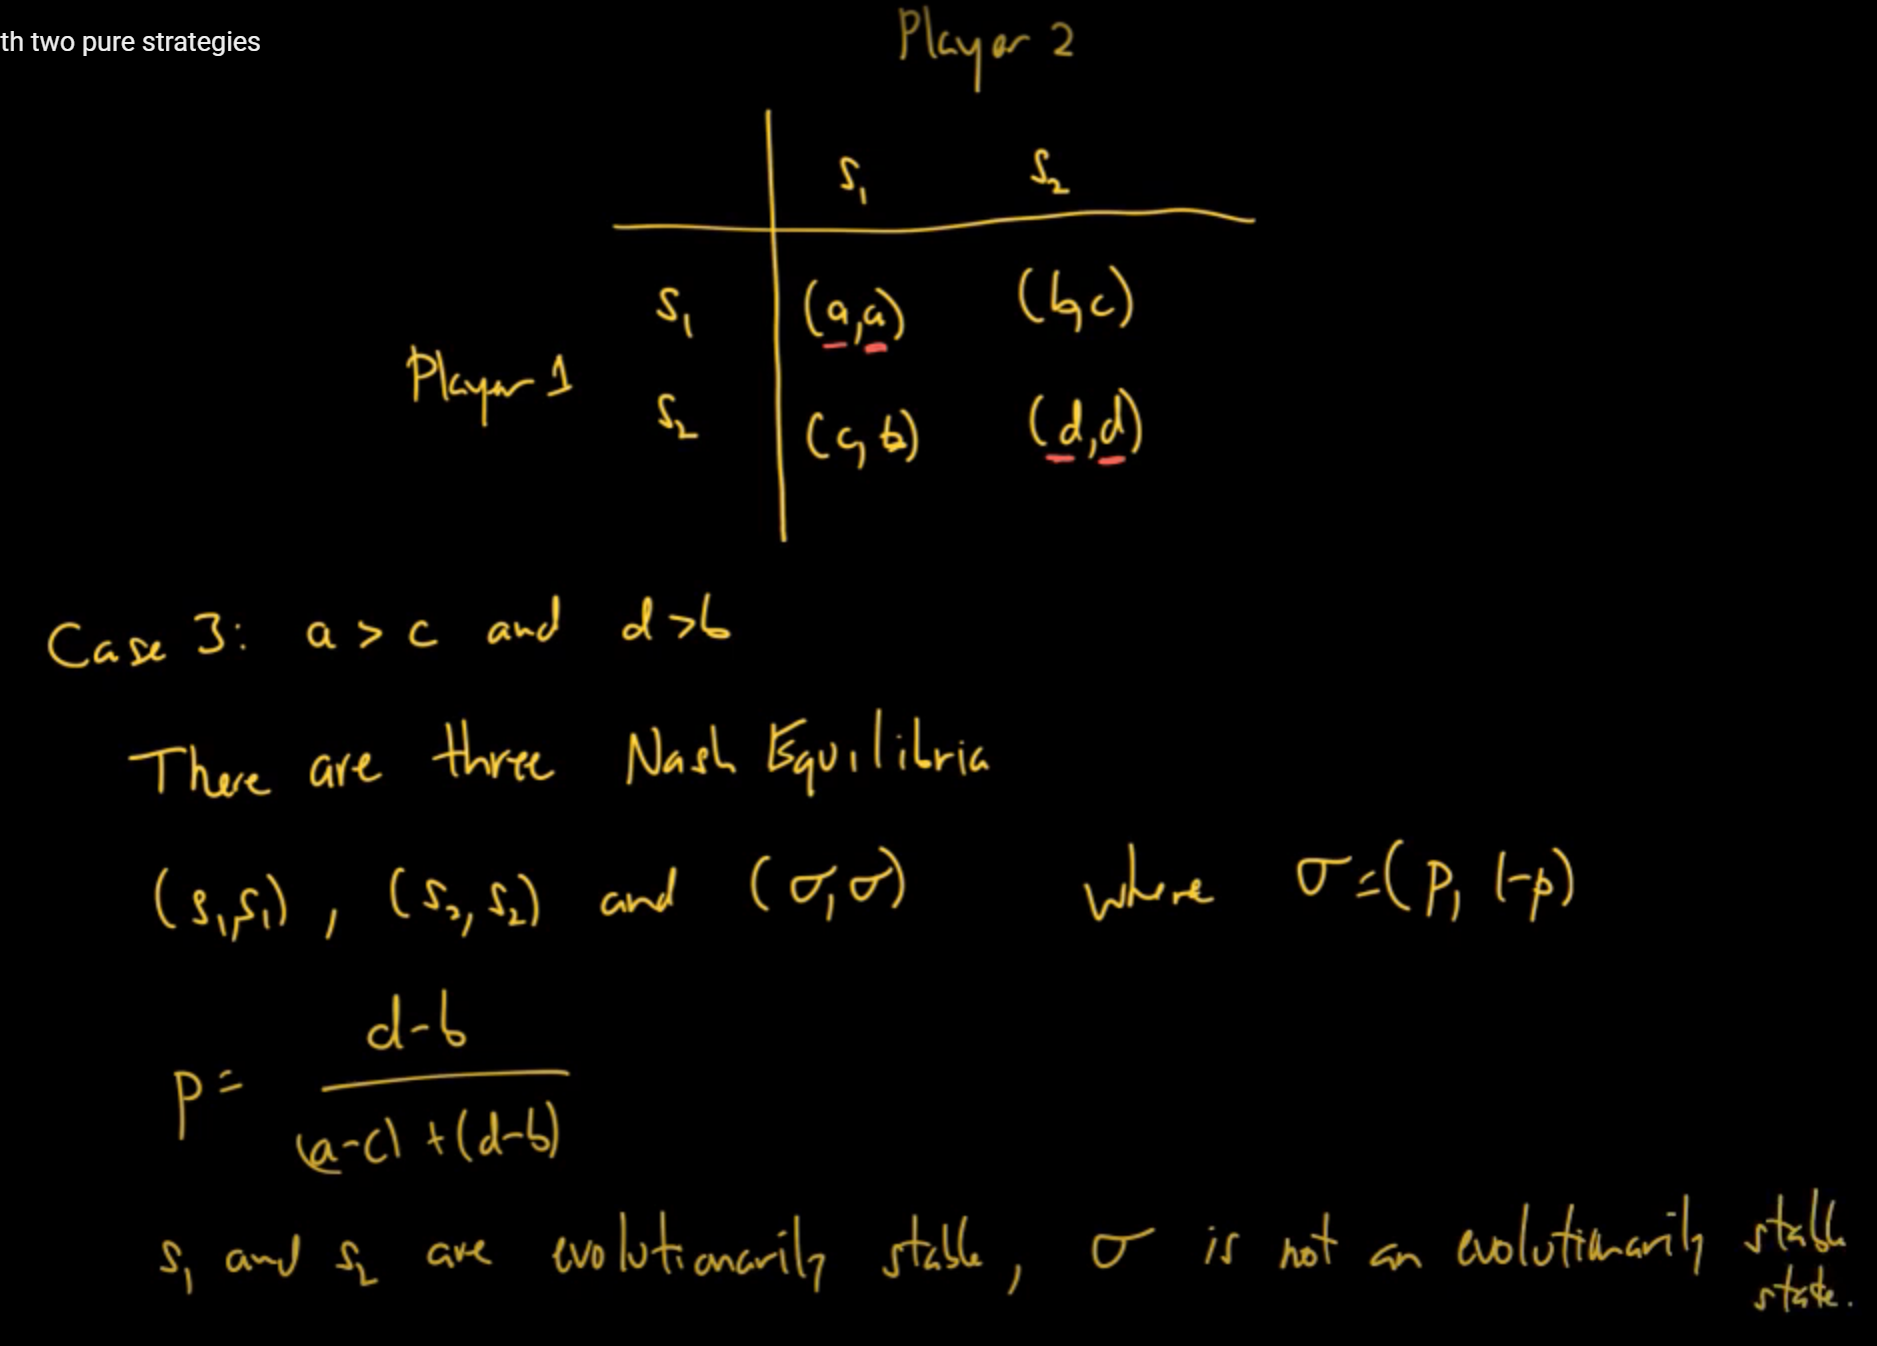 th two pure strategies
Player 2
S₁ S₂
S₁ (a,a) (b,c)
Player 1
S₂ (c,b) (d,d)
Case 3: a > c and d > b
There are three Nash Equilibria
(s₁,s₁), (s₂,s₂) and (σ,σ) where σ=(p, 1-p)
d-b
p=
(a-c) + (d-b)
s₁ and s₂ are evolutionarily stable, σ is not an evolutionarily stable
state.